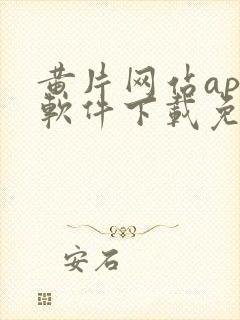 黄片网站ap
软件下载免
安石